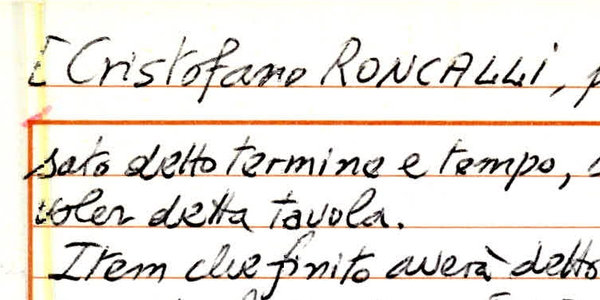 [Cristofano RONCALLI,
sato detto termine e tempo,
voler detta tavola.
Item che finito averà detto